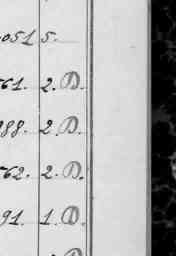 051 5.
61. 2. D.
88. 2. D.
62. 2. D.
91. 1. D.